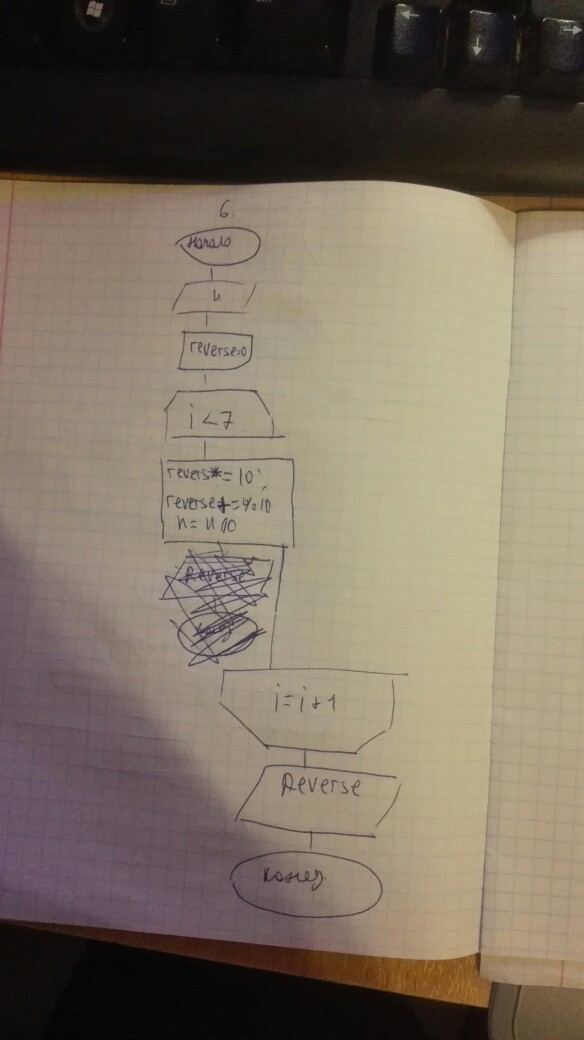 6.
Начало
n
reverse=0
i < 7
revers*= 10;
reverse+=%10
n= n/10
Reverse
i = i + 1
Reverse
Конец